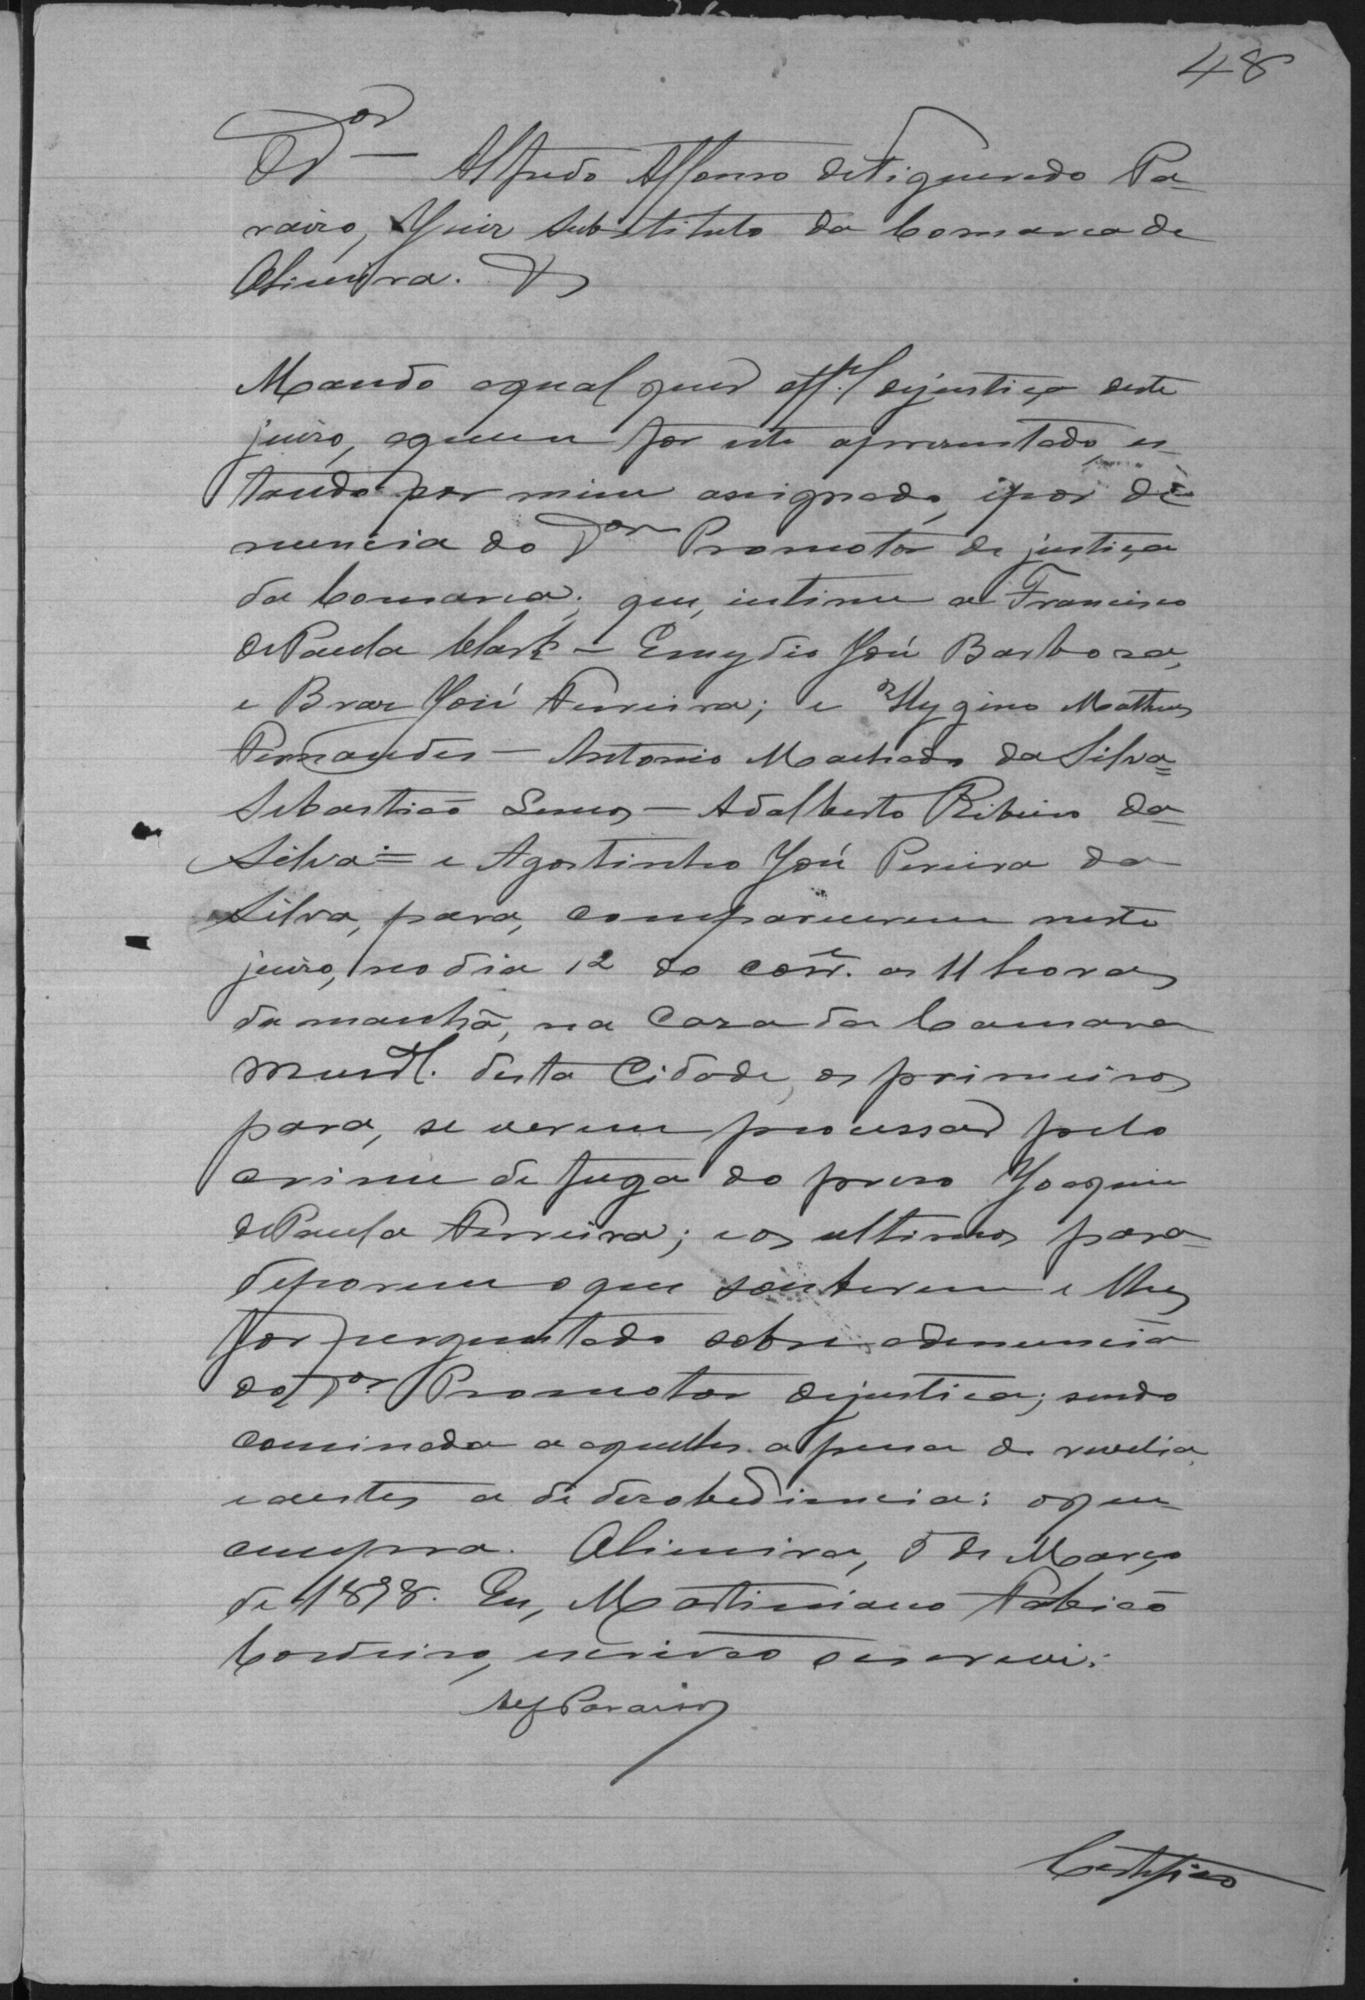 48
O Dor Alfredo Affonso de Figueredo Pa-
raizo, Juiz substituto da Comarca de
Alimira. &
Mando aqual quer offal dejustiça deste
juizo, aquem for este aprezentado, es-
tando por mim assignado, epor de-
nuncia do Dor Promotor de justiça
da Comarca; que, intime a Francisco
de Paula Clark — Emygdio José Barboza,
e Braz José Ferreira; e Hygino Matheus
Fernandes — Antonio Machado da Silva =
Sebastião Lemos — Adalberto Ribeiro da
Silva = e Agostinho José Pereira da
Silva, para, comparecerem neste
juizo, no dia 12 do corre. as 11 horas
da manhã, na Caza da Camara
Munal. desta Cidade, os primeiros
para, se verem processar pelo
crime de fuga do prezo Joaquim
de Paula Ferreira; e os ultimos para
deporem o que souberem e lhes
for perguntado sobre adenuncia
do Dor Promotor dejustiça; sendo
cominada a aquelles a pena de revelia,
e aestes a de dezobediencia: oque
cumpra. Alimira, 5 de Março
de 1898. Eu, Martiniano Fabião
Cordeiro, escrivão o escrevi.
Paraizo
Certifico